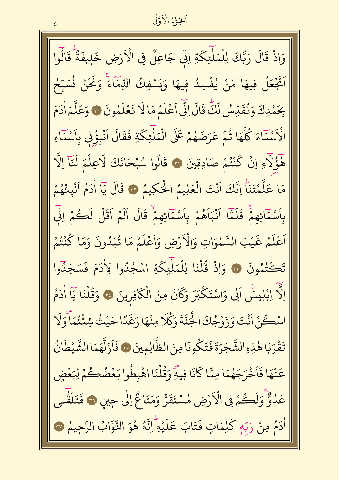 الجزء الأول
٥
وَاِذْ قَالَ رَبُّكَ لِلْمَلٰٓئِكَةِ اِنّ۪ي جَاعِلٌ فِي الْاَرْضِ خَل۪يفَةًۜ قَالُٓوا
اَتَجْعَلُ ف۪يهَا مَنْ يُفْسِدُ ف۪يهَا وَيَسْفِكُ الدِّمَٓاءَۚ وَنَحْنُ نُسَبِّحُ
بِحَمْدِكَ وَنُقَدِّسُ لَكَۜ قَالَ اِنّ۪ٓي اَعْلَمُ مَا لَا تَعْلَمُونَ ۝ وَعَلَّمَ اٰدَمَ
الْاَسْمَٓاءَ كُلَّهَا ثُمَّ عَرَضَهُمْ عَلَى الْمَلٰٓئِكَةِ فَقَالَ اَنْبِؤُ۫ن۪ي بِاَسْمَٓاءِ
هٰٓؤُ۬لَٓاءِ اِنْ كُنْتُمْ صَادِق۪ينَ ۝ قَالُوا سُبْحَانَكَ لَا عِلْمَ لَنَٓا اِلَّا
مَا عَلَّمْتَنَاۜ اِنَّكَ اَنْتَ الْعَل۪يمُ الْحَك۪يمُ ۝ قَالَ يَٓا اٰدَمُ اَنْبِئْهُمْ
بِاَسْمَٓائِهِمْۚ فَلَمَّٓا اَنْبَاَهُمْ بِاَسْمَٓائِهِمْۙ قَالَ اَلَمْ اَقُلْ لَكُمْ اِنّ۪ٓي
اَعْلَمُ غَيْبَ السَّمٰوَاتِ وَالْاَرْضِۙ وَاَعْلَمُ مَا تُبْدُونَ وَمَا كُنْتُمْ
تَكْتُمُونَ ۝ وَاِذْ قُلْنَا لِلْمَلٰٓئِكَةِ اسْجُدُوا لِاٰدَمَ فَسَجَدُٓوا
اِلَّٓا اِبْل۪يسَۜ اَبٰى وَاسْتَكْبَرَ وَكَانَ مِنَ الْكَافِر۪ينَ ۝ وَقُلْنَا يَٓا اٰدَمُ
اسْكُنْ اَنْتَ وَزَوْجُكَ الْجَنَّةَ وَكُلَا مِنْهَا رَغَدًا حَيْثُ شِئْتُمَاۖ وَلَا
تَقْرَبَا هٰذِهِ الشَّجَرَةَ فَتَكُونَا مِنَ الظَّالِم۪ينَ ۝ فَاَزَلَّهُمَا الشَّيْطَانُ
عَنْهَا فَاَخْرَجَهُمَا مِمَّا كَانَا ف۪يهِۖ وَقُلْنَا اهْبِطُوا بَعْضُكُمْ لِبَعْضٍ
عَدُوٌّۚ وَلَكُمْ فِي الْاَرْضِ مُسْتَقَرٌّ وَمَتَاعٌ اِلٰى ح۪ينٍ ۝ فَتَلَقّٰٓى
اٰدَمُ مِنْ رَبِّه۪ كَلِمَاتٍ فَتَابَ عَلَيْهِۜ اِنَّهُ هُوَ التَّوَّابُ الرَّح۪يمُ ۝